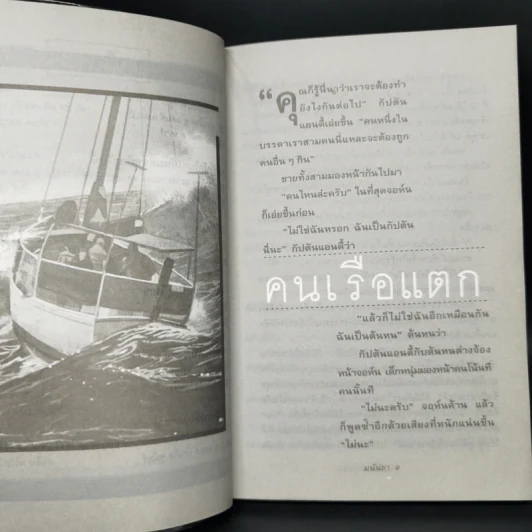 "คุณก็รู้นี่นาว่าเราจะต้องทำ
ยังไงกันต่อไป" กัปตัน
แอนดี้เอ่ยขึ้น "คนหนึ่งใน
บรรดาเราสามคนนี่แหละจะต้องถูก
คนอื่น ๆ กิน"
ชายทั้งสามมองหน้ากันไปมา
"คนไหนล่ะครับ" ในที่สุดจอห์น
ก็เอ่ยขึ้นก่อน
"ไม่ใช่ฉันหรอก ฉันเป็นกัปตัน
นี่นะ" กัปตันแอนดี้ว่า
คนเรือแตก
"แล้วก็ไม่ใช่ฉันอีกเหมือนกัน
ฉันเป็นต้นหน" ต้นหนว่า
กัปตันแอนดี้กับต้นหนต่างจ้อง
หน้าจอห์น เด็กหนุ่มมองหน้าคนโน้นที
คนนี้ที
"ไม่นะครับ" จอห์นค้าน แล้ว
ก็พูดซ้ำอีกด้วยเสียงที่หนักแน่นขึ้น
"ไม่นะ"